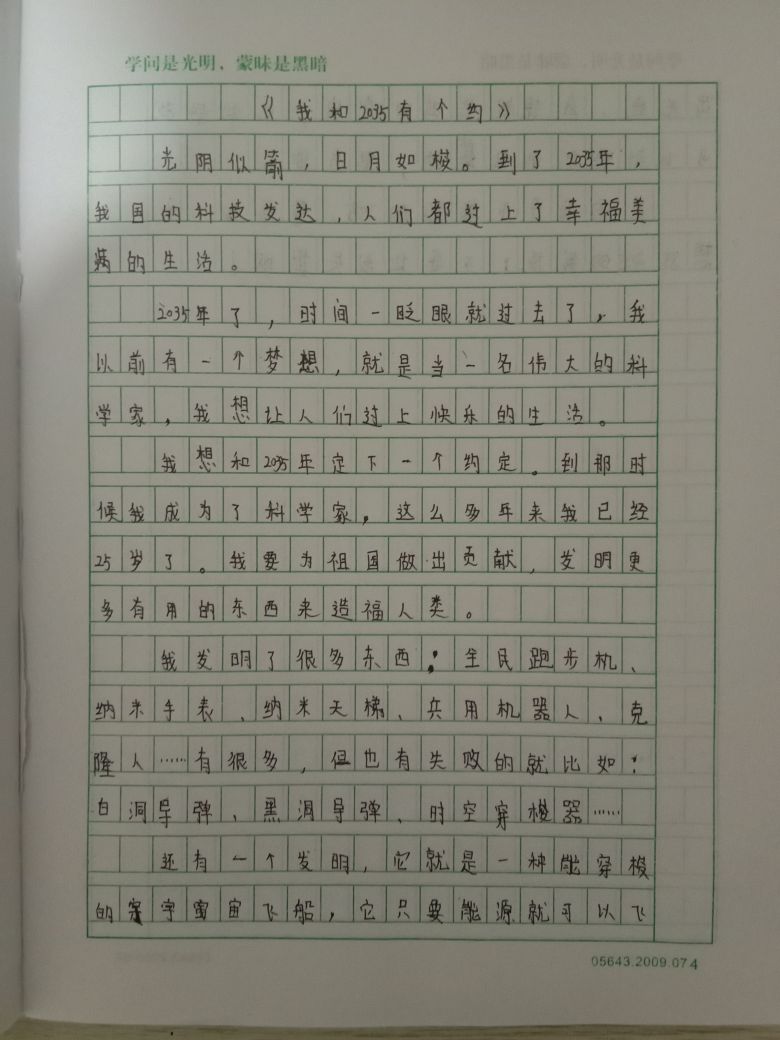 学问是光明，蒙昧是黑暗
《我和2035有个约》
光阴似箭，日月如梭。到了2035年，
我国的科技发达，人们都过上了幸福美
满的生活。
2035年了，时间一眨眼就过去了，我
以前有一个梦想，就是当一名伟大的科
学家，我想让人们过上快乐的生活。
我想和2035年定下一个约定。到那时
候我成为了科学家，这么多年来我已经
25岁了。我要为祖国做出贡献，发明更
多有用的东西来造福人类。
我发明了很多东西：全民跑步机、
纳米手表、纳米天梯、兵用机器人、克
隆人……有很多，但也有失败的就比如：
白洞导弹、黑洞导弹、时空穿梭器……
还有一个发明，它就是一种能穿梭
的宇宙飞船，它只要能源就可以飞
05643.2009.074